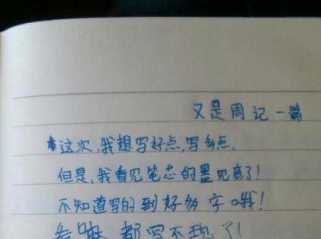 又是周记一篇
这次,我想写好点,写多点,
但是,我看见笔芯的墨见底了!
不知道写的到好多字哦!
都写不现了!